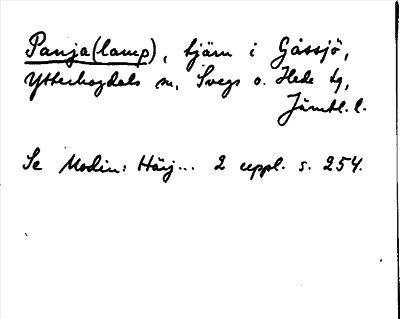 Panja(lamp), tjärn i Gåssjö,
Ytterhogdals sn, Svegs o. Hede tg,
Jämtl. l.
Se Modin: Härj... 2 uppl. s. 254.